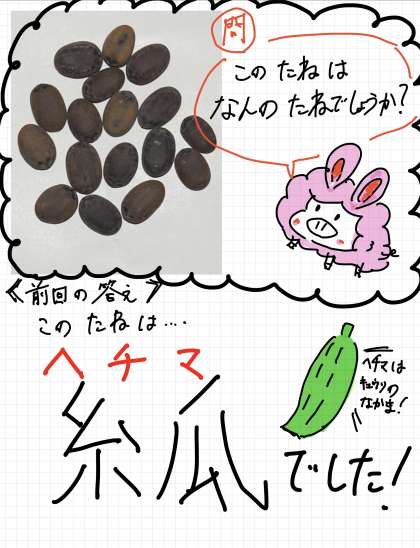 問
このたねは
なんのたねでしょうか?
≪前回の答え≫
このたねは…
ヘチマ
糸瓜でした!
ヘチマは
キュウリの
なかま!